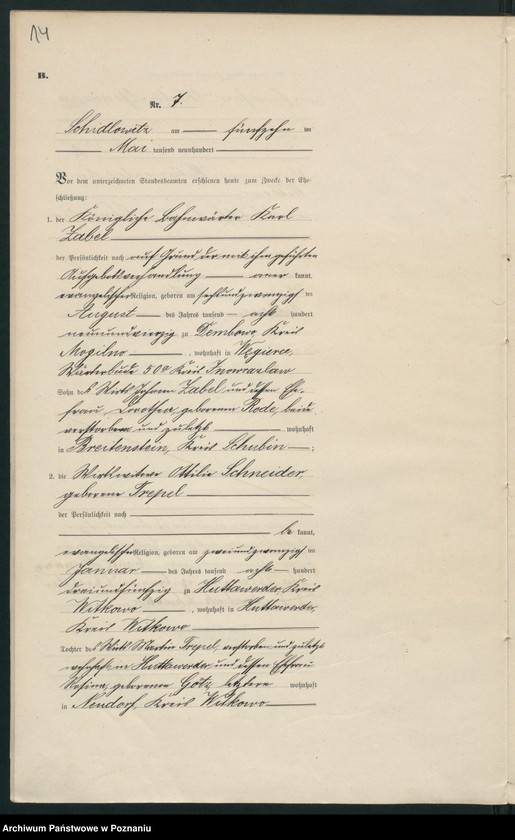 14
B.
Nr. 7.
Schidlowitz am fünfzehn ten
Mai tausend neunhundert
Vor dem unterzeichneten Standesbeamten erschienen heute zum Zwecke der Ehe-
schließung:
1. der Königliche Bahnwärter Karl
Zabel
der Persönlichkeit nach auf Grund der mit ihm geführten
Aufgebotsverhandlung aner kannt,
evangelischer Religion, geboren am sechsundzwanzigsten
August des Jahres tausend acht hundert
neunundvierzig zu Dembowo, Kreis
Mogilno, wohnhaft in Wegierce,
Wärterbude 500 Kreis Inowrazlaw
Sohn des Wirts Johann Zabel und dessen Ehe-
frau Dorothea geborenen Rode, beide
verstorben und zuletzt wohnhaft
in Breitenstein, Kreis Schubin;
2. die Wirtwitwe Ottilie Schneider,
geborene Trepel
der Persönlichkeit nach
be kannt,
evangelischer Religion, geboren am zweiundzwanzigsten
Januar des Jahres tausend acht hundert
dreiundfünfzig zu Huttawerder, Kreis
Witkowo, wohnhaft in Huttawerder,
Kreis Witkowo
Tochter des Wirts Martin Trepel, verstorben und zuletzt
wohnhaft in Huttawerder und dessen Ehefrau
Rosina, geborenen Götz, letztere wohnhaft
in Neudorf, Kreis Witkowo
Archiwum Państwowe w Poznaniu